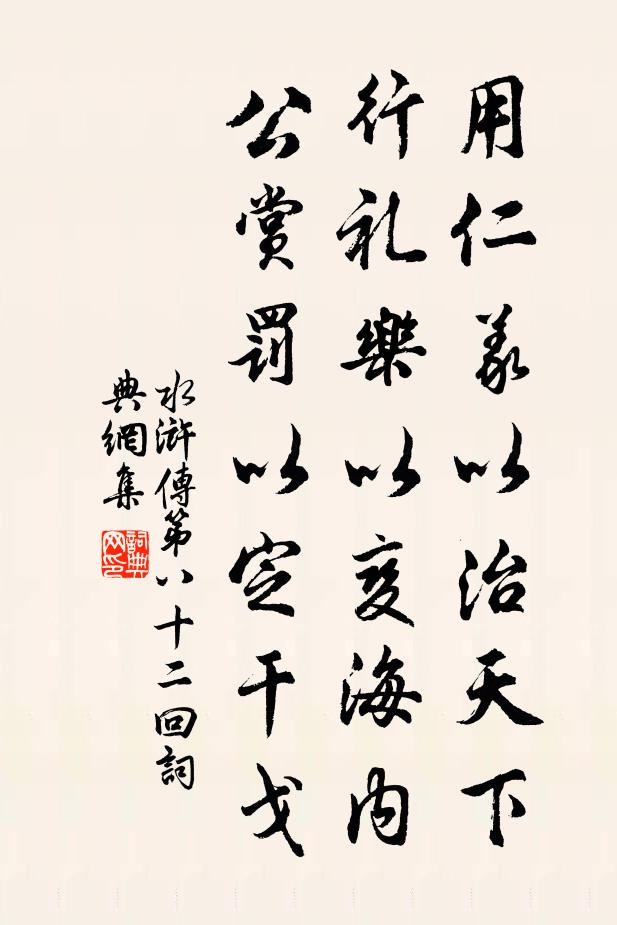 用仁义以治天下
行礼樂以变海内
公赏罰以定干戈
水滸傳第八十二回詞
典網集
詞典
网印